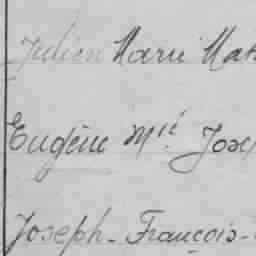 Julien Marie Mat
Eugène Mié Jos
Joseph-François-